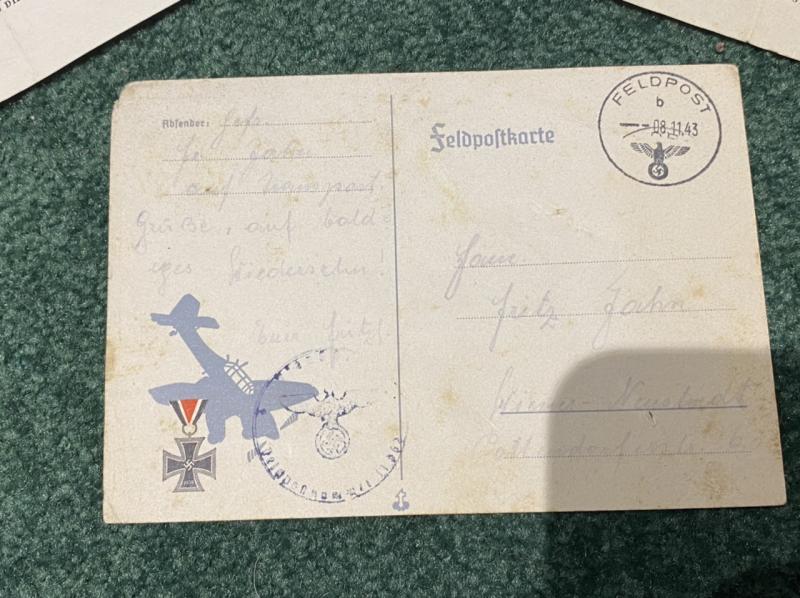 Absender: Gefr.
Fr. Jahn
auf Transport.
Grüße, auf bald-
iges Wiedersehn!
Euer Fritz!
Feldpostkarte
FELDPOST
b
08.11.43
Fam.
Fritz Jahn
Wiener-Neustadt